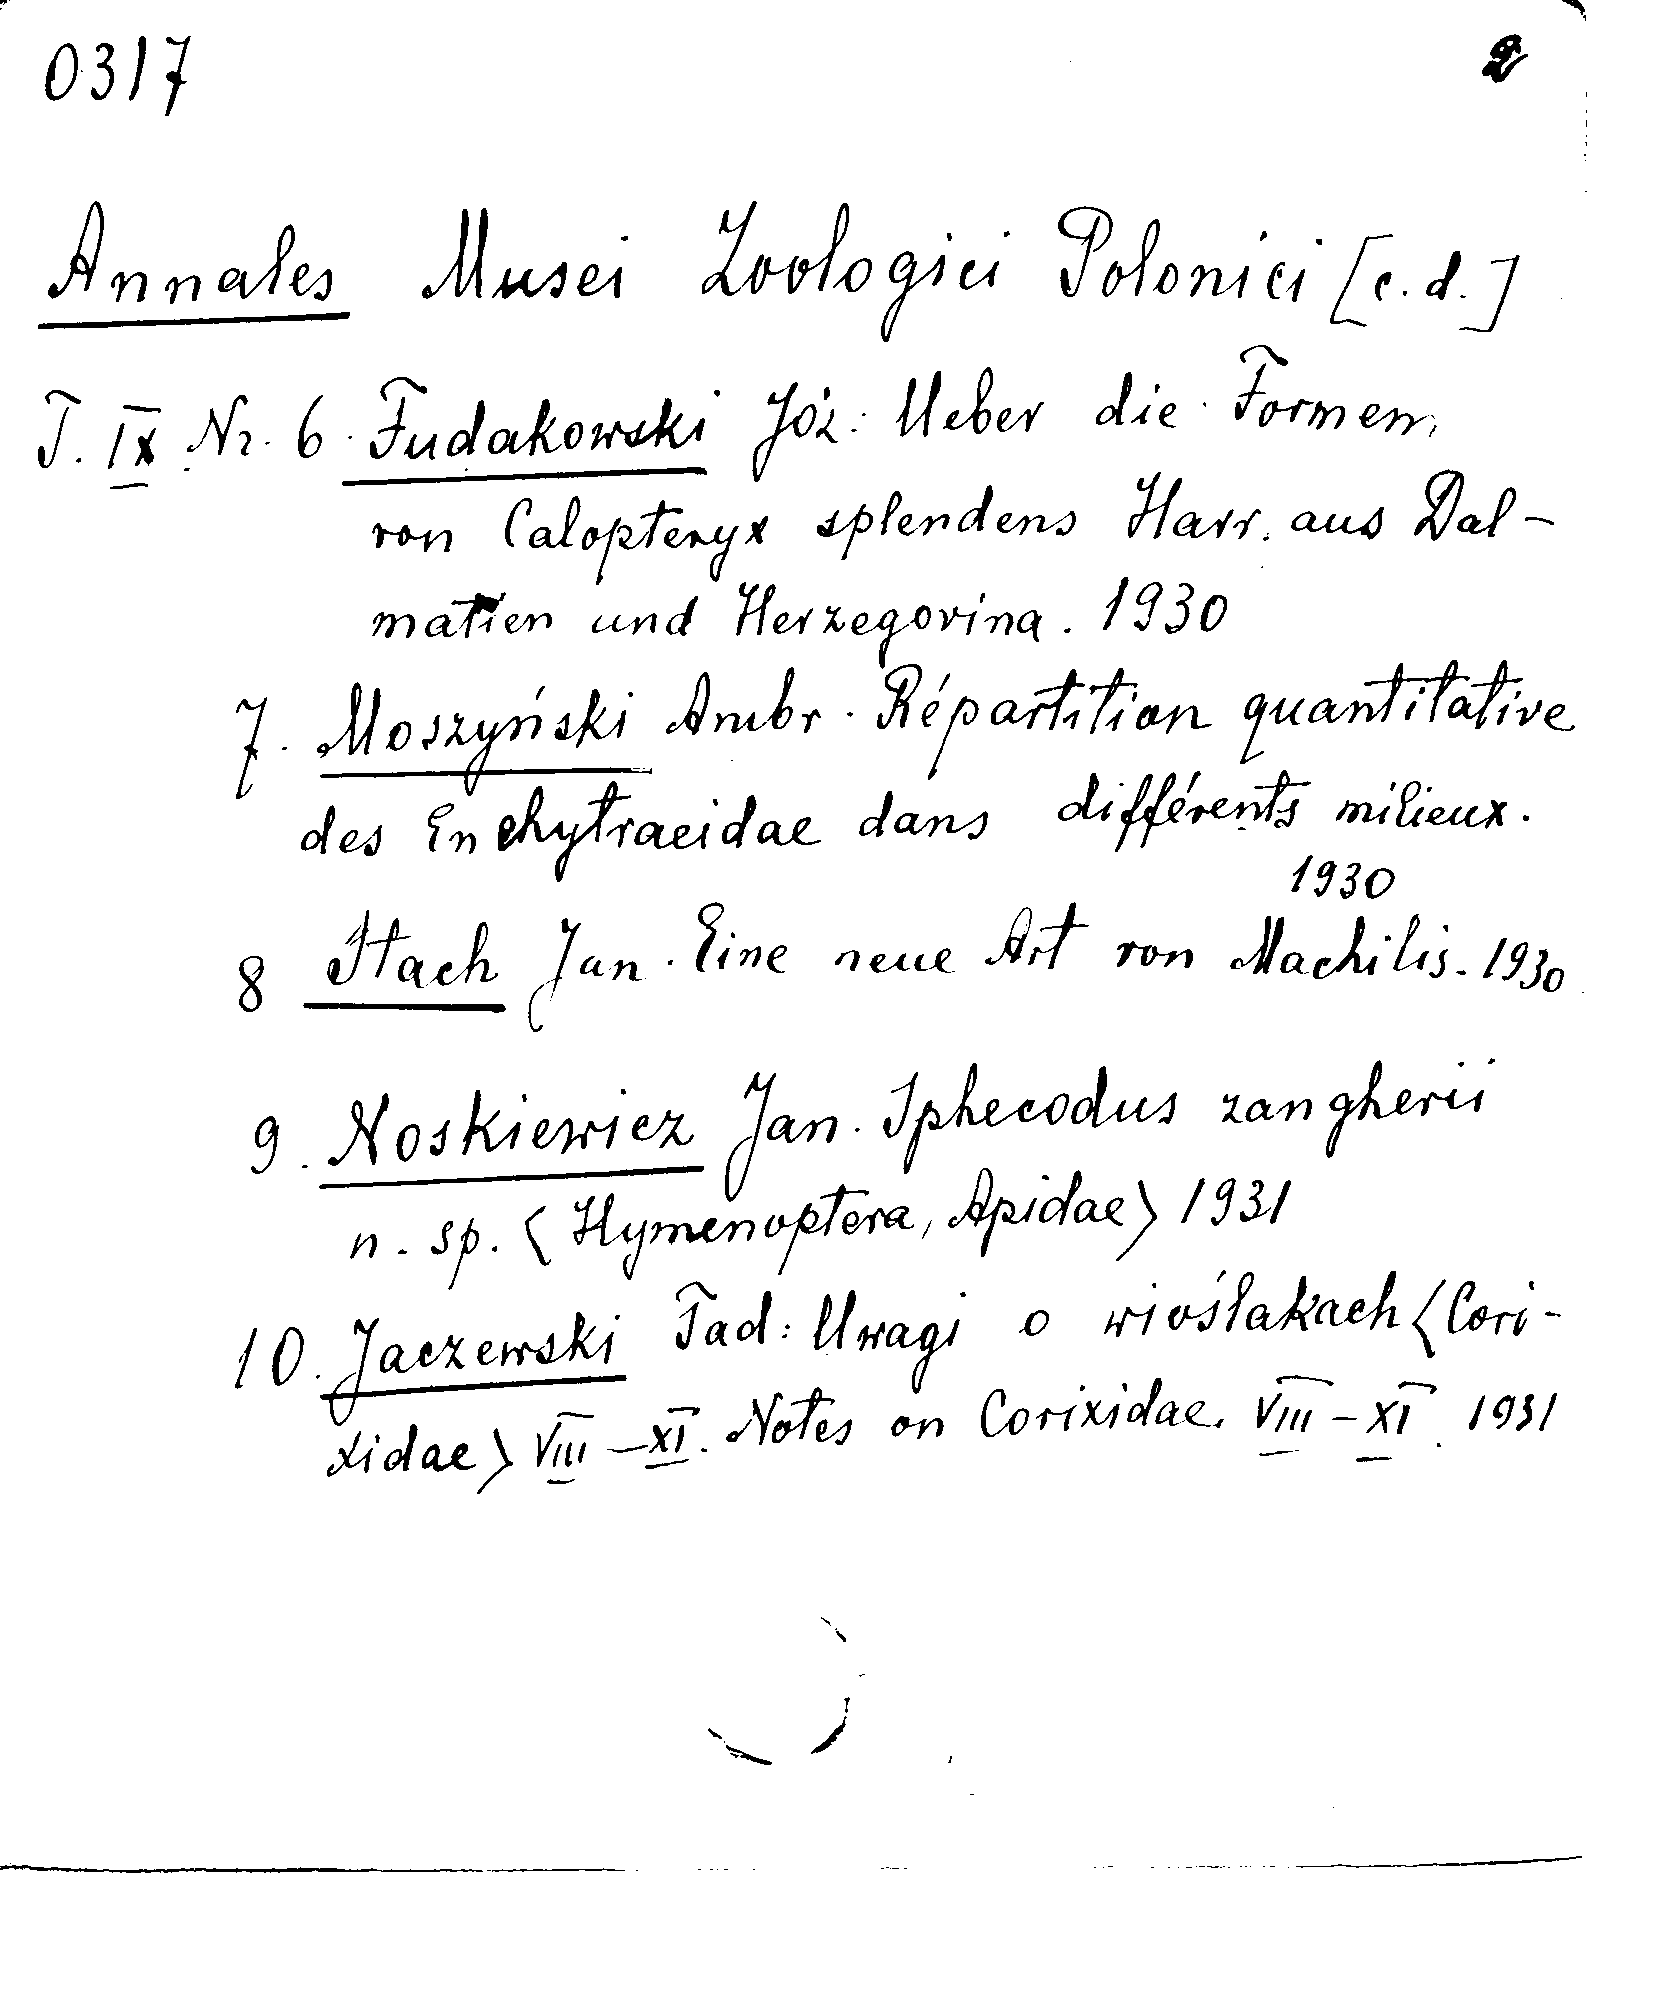 0317 2
Annales Musei Zoologici Polonici [c.d.]
T. IX Nr. 6. Fudakowski Józ: Ueber die Formen
von Calopteryx splendens Harr. aus Dal-
matien und Herzegovina. 1930
7. Moszyński Ambr. Répartition quantitative
des Enchytraeidae dans différents milieux.
1930
8 Stach Jan. Eine neue Art von Machilis. 1930
9. Noskiewicz Jan. Sphecodus zangherii
n. sp. <Hymenoptera, Apidae> 1931
10. Jaczewski Tad: Uwagi o wioślakach <Cori-
xidae> VIII-XI. Notes on Corixidae. VIII-XI. 1931